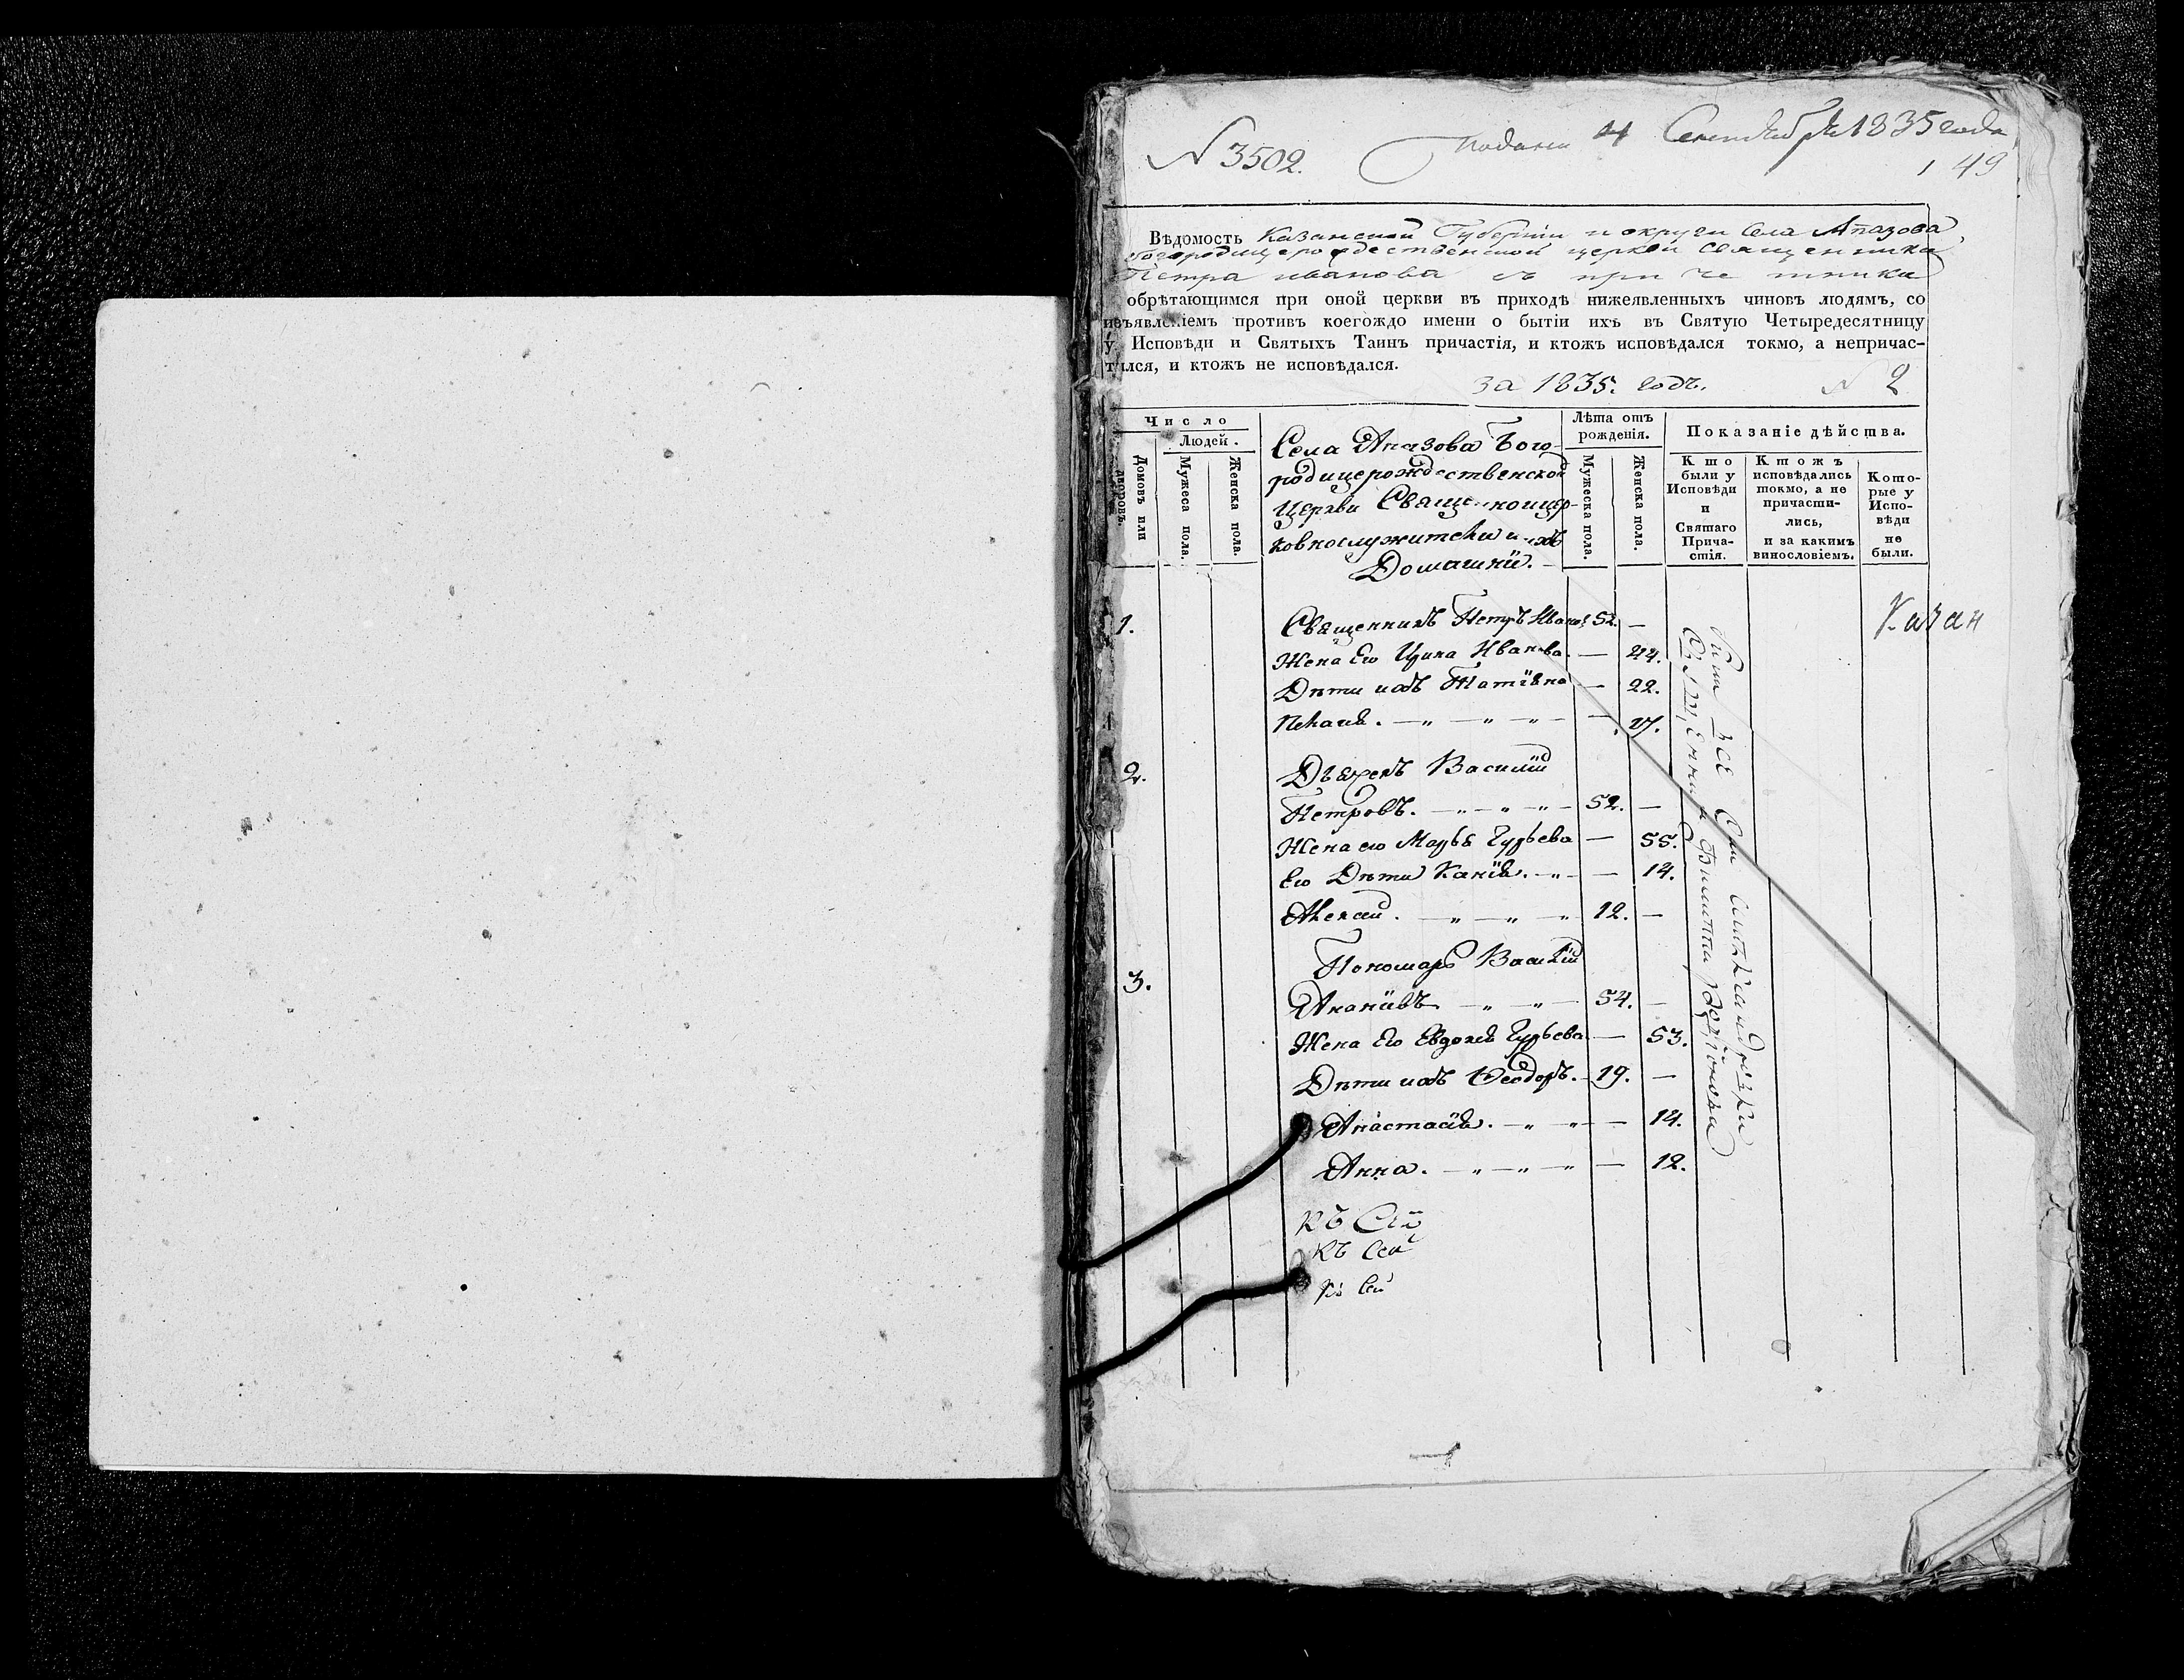 N 3502.
4 Сентября 1835 года
149
Вѣдомость Казанской Губерніи и округи Села Апазова
Богородицерождественской церкви священника
Петра иванова съ причетники
обрѣтающимся при оной церкви въ приходѣ нижеявленныхъ чиновъ людямъ, со
изъявленіемъ противъ коегождо имени о бытіи ихъ въ Святую Четыредесятницу
у Исповѣди и Святыхъ Таинъ причастія, и ктожъ исповѣдался токмо, а непричас-
тился, и ктожъ не исповѣдался.
за 1835. годъ. N 2
Число
Людей.
Домовъ или дворовъ.
Мужеска пола.
Женска пола.
Села Апазова Бого-
родицерождественской
Церкви Священноцер-
ковнослужители и ихъ
Домашніи.
Лѣта отъ
рожденія.
Мужеска пола.
Женска пола.
Показаніе дѣйства.
Кто
были у
Исповѣди
и
Святаго
Прича-
стія.
Ктожъ
исповѣдались
токмо, а не
причасти-
лись,
и за какимъ
винословіемъ.
Кото-
рые у
Испо-
вѣди
не
были.
1. Священникъ Петръ Иванов 52. —
Жена Его Ирина Иванова. — 44.
Дѣти ихъ — 22.
Пелагія. — 17.
2. Дьячекъ Василій
Петровъ. 52. —
Жена его Марья Гурьева — 55.
Его Дѣти — 14.
Алексий. 12. —
3. Пономарь Василій
Ананіевъ 54. —
Жена Его Евдокія Гурьева — 53.
Дѣти ихъ Ѳеодоръ. 19. —
Анастасія. — 14.
Анна. — 12.
Къ Сей
Къ Сей
Къ Сей